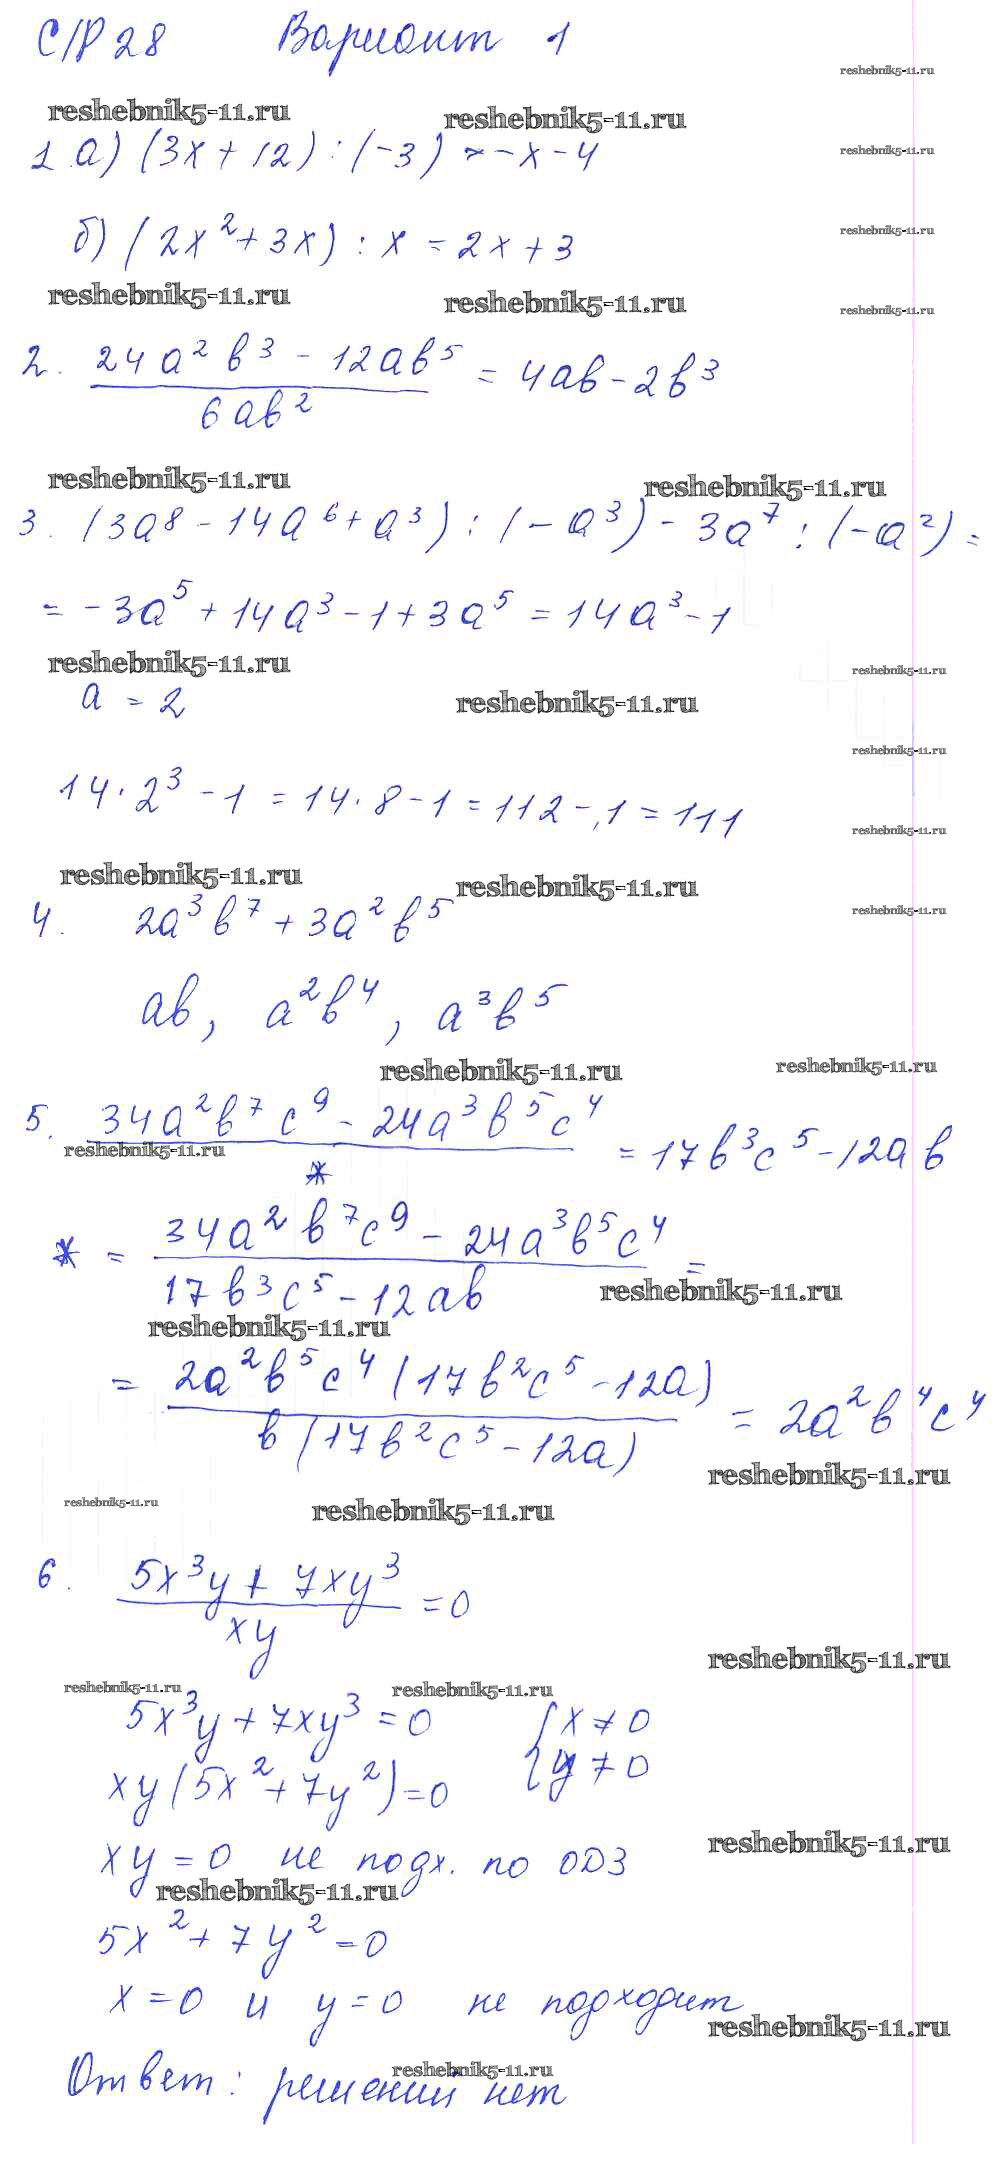 С/Р 28 Вариант 1
reshebnik5-11.ru
reshebnik5-11.ru
reshebnik5-11.ru
1 а) (3x + 12) : (-3) = -x - 4
reshebnik5-11.ru
б) (2x² + 3x) : x = 2x + 3
reshebnik5-11.ru
reshebnik5-11.ru
reshebnik5-11.ru
reshebnik5-11.ru
2. 24a²b³ - 12ab⁵ / 6ab² = 4ab - 2b³
reshebnik5-11.ru
reshebnik5-11.ru
3. (3a⁸ - 14a⁶ + a³) : (-a³) - 3a⁷ : (-a²) =
= -3a⁵ + 14a³ - 1 + 3a⁵ = 14a³ - 1
reshebnik5-11.ru
reshebnik5-11.ru
a = 2
reshebnik5-11.ru
reshebnik5-11.ru
14 · 2³ - 1 = 14 · 8 - 1 = 112 - 1 = 111
reshebnik5-11.ru
reshebnik5-11.ru
reshebnik5-11.ru
4. 2a³b⁷ + 3a²b⁵
reshebnik5-11.ru
ab, a²b⁴, a³b⁵
reshebnik5-11.ru
reshebnik5-11.ru
5. 34a²b⁷c⁹ - 24a³b⁵c⁴ / * = 17b³c⁵ - 12ab
reshebnik5-11.ru
* = 34a²b⁷c⁹ - 24a³b⁵c⁴ / 17b³c⁵ - 12ab =
reshebnik5-11.ru
reshebnik5-11.ru
= 2a²b⁵c⁴(17b²c⁵ - 12a) / b(17b²c⁵ - 12a) = 2a²b⁴c⁴
reshebnik5-11.ru
reshebnik5-11.ru
reshebnik5-11.ru
6. 5x³y + 7xy³ / xy = 0
reshebnik5-11.ru
reshebnik5-11.ru
reshebnik5-11.ru
5x³y + 7xy³ = 0 { x ≠ 0
xy(5x² + 7y²) = 0 y ≠ 0
reshebnik5-11.ru
xy = 0 не подх. по ОДЗ
reshebnik5-11.ru
5x² + 7y² = 0
x = 0 и y = 0 не подходит
reshebnik5-11.ru
reshebnik5-11.ru
Ответ: решений нет